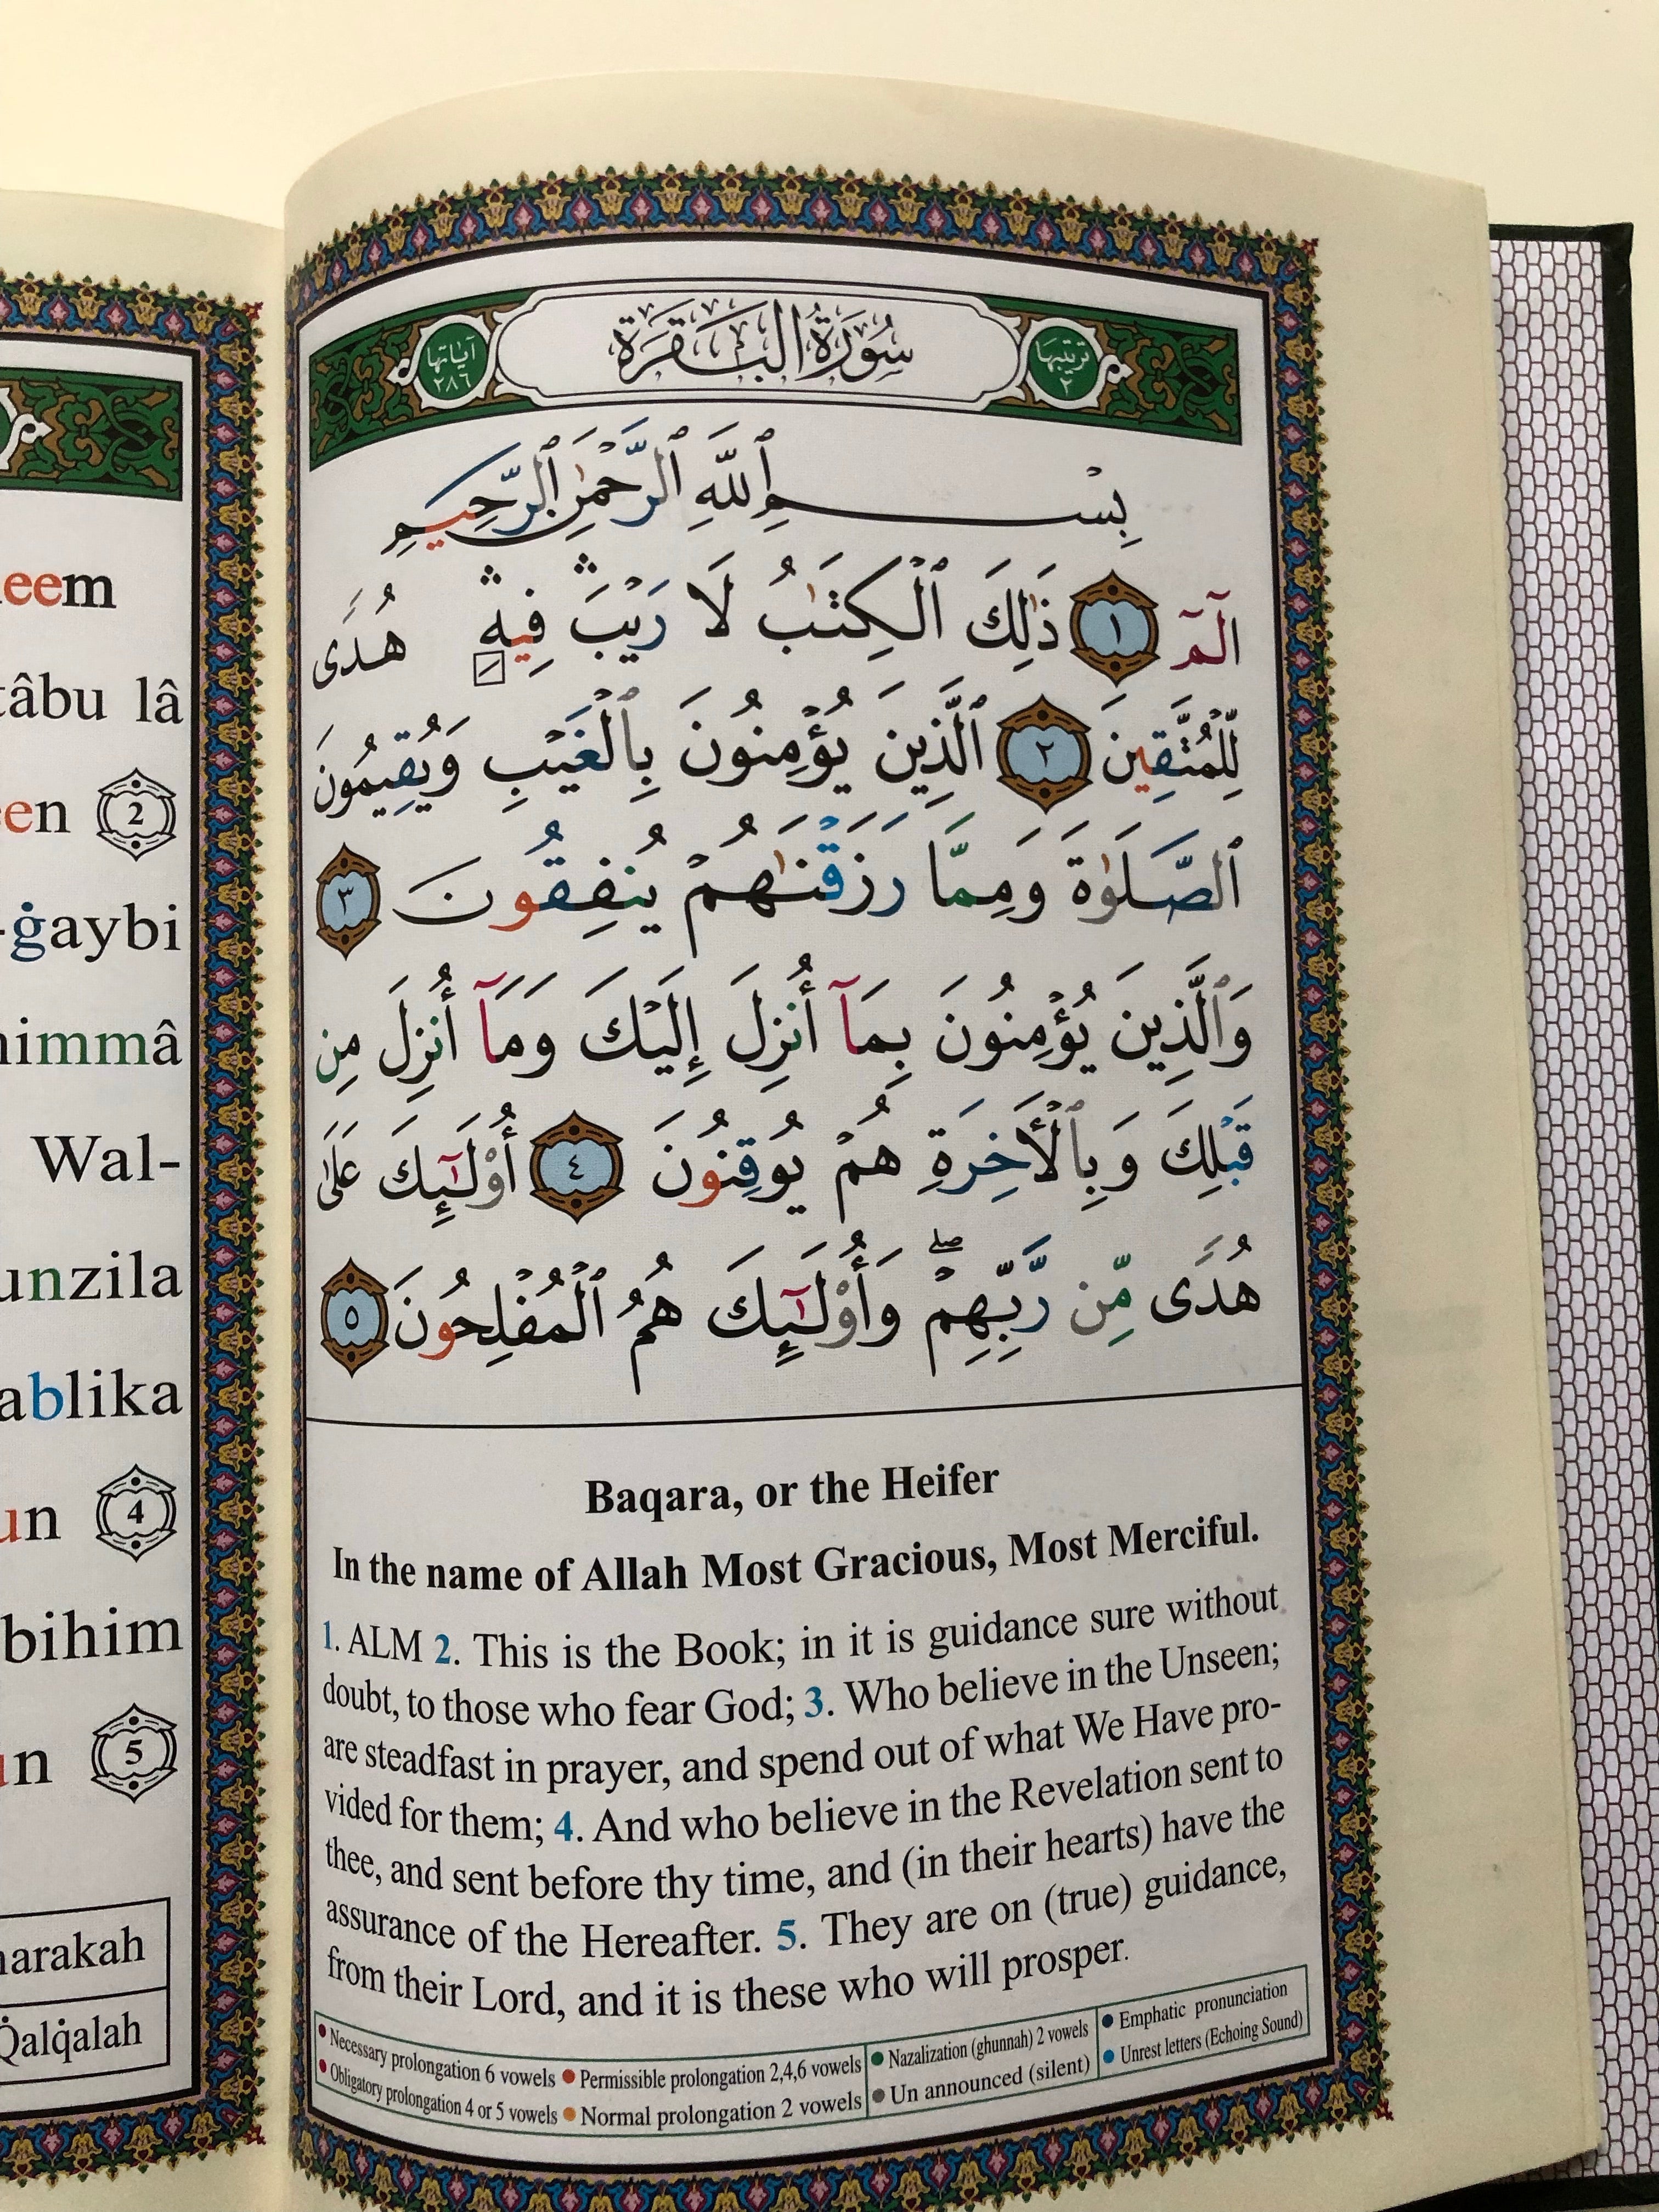 eem
tâbu lâ
een 2
-ġaybi
nimmâ
Wal-
unzila
ablika
un 4
bihim
un 5
harakah
Q̇alq̇alah
آياتها ٢٨٦
سُورَةُ البَقَرَة
ترتيبها ٢
بِسْمِ ٱللَّهِ ٱلرَّحْمَٰنِ ٱلرَّحِيمِ
الٓمٓ ١ ذَٰلِكَ ٱلْكِتَٰبُ لَا رَيْبَ ۛ فِيهِ ۛ هُدًى
لِّلْمُتَّقِينَ ٢ ٱلَّذِينَ يُؤْمِنُونَ بِٱلْغَيْبِ وَيُقِيمُونَ
ٱلصَّلَوٰةَ وَمِمَّا رَزَقْنَٰهُمْ يُنفِقُونَ ٣
وَٱلَّذِينَ يُؤْمِنُونَ بِمَآ أُنزِلَ إِلَيْكَ وَمَآ أُنزِلَ مِن
قَبْلِكَ وَبِٱلْأَخِرَةِ هُمْ يُوقِنُونَ ٤ أُو۟لَٰٓئِكَ عَلَىٰ
هُدًى مِّن رَّبِّهِمْ ۖ وَأُو۟لَٰٓئِكَ هُمُ ٱلْمُفْلِحُونَ ٥
Baqara, or the Heifer
In the name of Allah Most Gracious, Most Merciful.
1. ALM 2. This is the Book; in it is guidance sure without
doubt, to those who fear God; 3. Who believe in the Unseen;
are steadfast in prayer, and spend out of what We Have pro-
vided for them; 4. And who believe in the Revelation sent to
thee, and sent before thy time, and (in their hearts) have the
assurance of the Hereafter. 5. They are on (true) guidance,
from their Lord, and it is these who will prosper.
Necessary prolongation 6 vowels Permissible prolongation 2,4,6 vowels Nazalization (ghunnah) 2 vowels Emphatic pronunciation
Obligatory prolongation 4 or 5 vowels Normal prolongation 2 vowels Un announced (silent) Unrest letters (Echoing Sound)